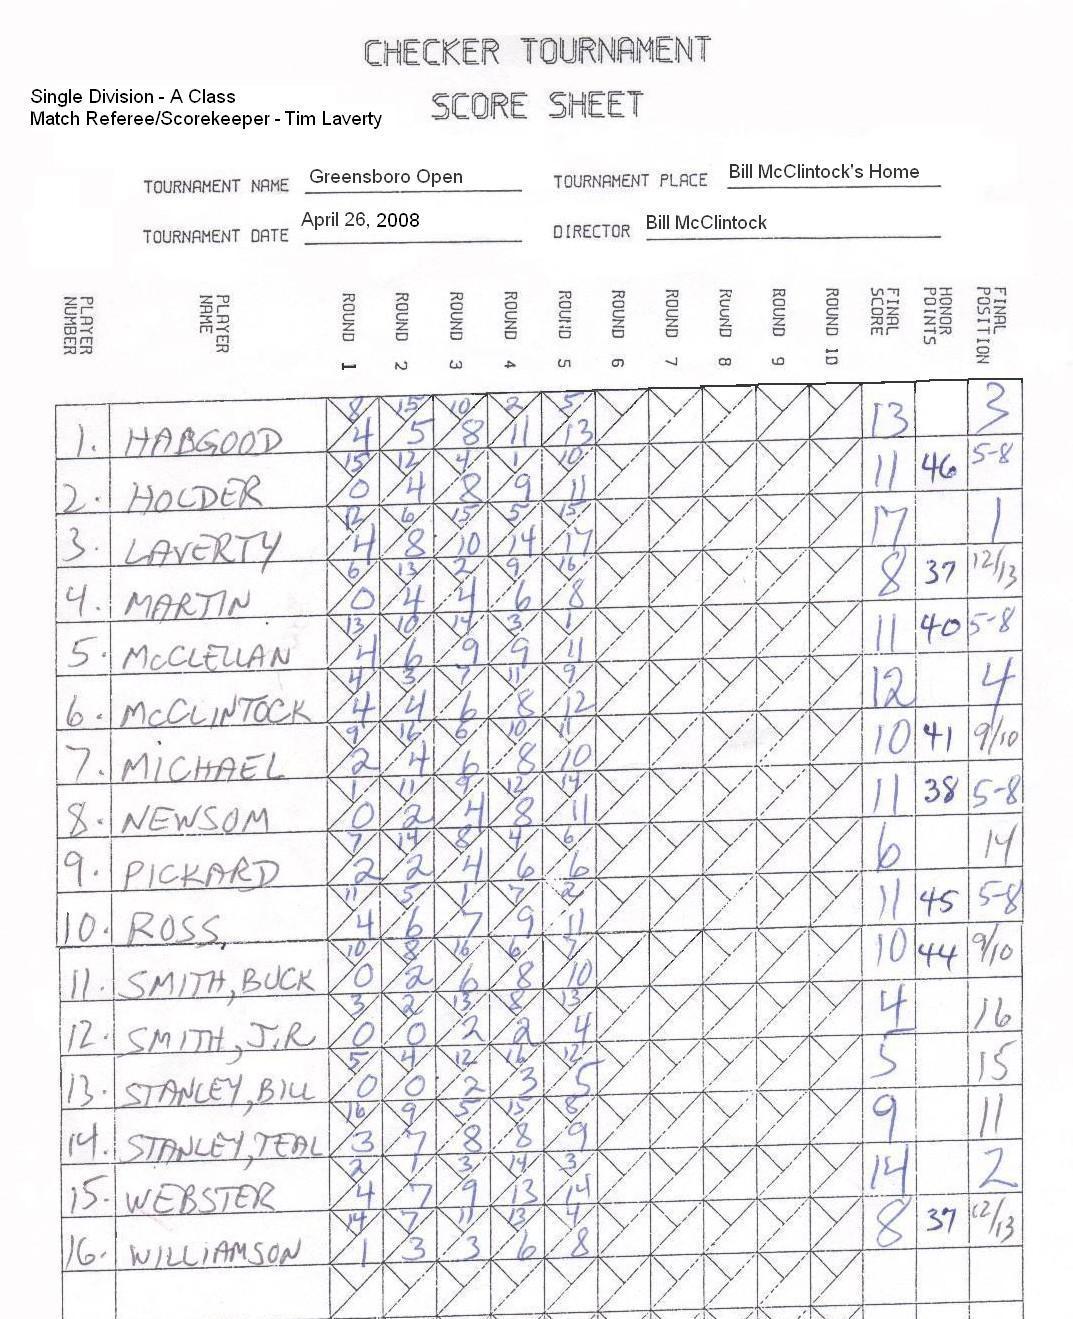 CHECKER TOURNAMENT
SCORE SHEET
Single Division - A Class
Match Referee/Scorekeeper - Tim Laverty
TOURNAMENT NAME Greensboro Open TOURNAMENT PLACE Bill McClintock's Home
TOURNAMENT DATE April 26, 2008 DIRECTOR Bill McClintock
PLAYER NUMBER PLAYER NAME ROUND 1 ROUND 2 ROUND 3 ROUND 4 ROUND 5 ROUND 6 ROUND 7 ROUND 8 ROUND 9 ROUND 10 FINAL SCORE HONOR POINTS FINAL POSITION
8 15 10 2 5
1. HABGOOD 4 5 8 11 13 13 3
15 12 4 1 10
2. HOLDER 0 4 8 9 11 11 46 5-8
12 6 15 5 15
3. LAVERTY 4 8 10 14 17 17 1
6 13 2 9 16
4. MARTIN 0 4 4 6 8 8 37 12/13
13 10 14 3 1
5. McCLELLAN 4 6 9 9 11 11 40 5-8
4 3 7 11 9
6. McCLINTOCK 4 4 6 8 12 12 4
9 16 6 10 11
7. MICHAEL 2 4 6 8 10 10 41 9/10
1 11 9 12 14
8. NEWSOM 0 2 4 8 11 11 38 5-8
7 14 8 4 6
9. PICKARD 2 2 4 6 6 6 14
11 5 1 7 2
10. ROSS 4 6 7 9 11 11 45 5-8
10 8 16 6 7
11. SMITH, BUCK 0 2 6 8 10 10 44 9/10
3 2 13 8 13
12. SMITH, J.R. 0 0 2 2 4 4 16
5 4 12 16 12
13. STANLEY, BILL 0 0 2 3 5 5 15
16 9 5 15 8
14. STANLEY, TEAL 3 7 8 8 9 9 11
2 1 3 14 3
15. WEBSTER 4 7 9 13 14 14 2
14 7 11 13 4
16. WILLIAMSON 1 3 3 6 8 8 37 12/13